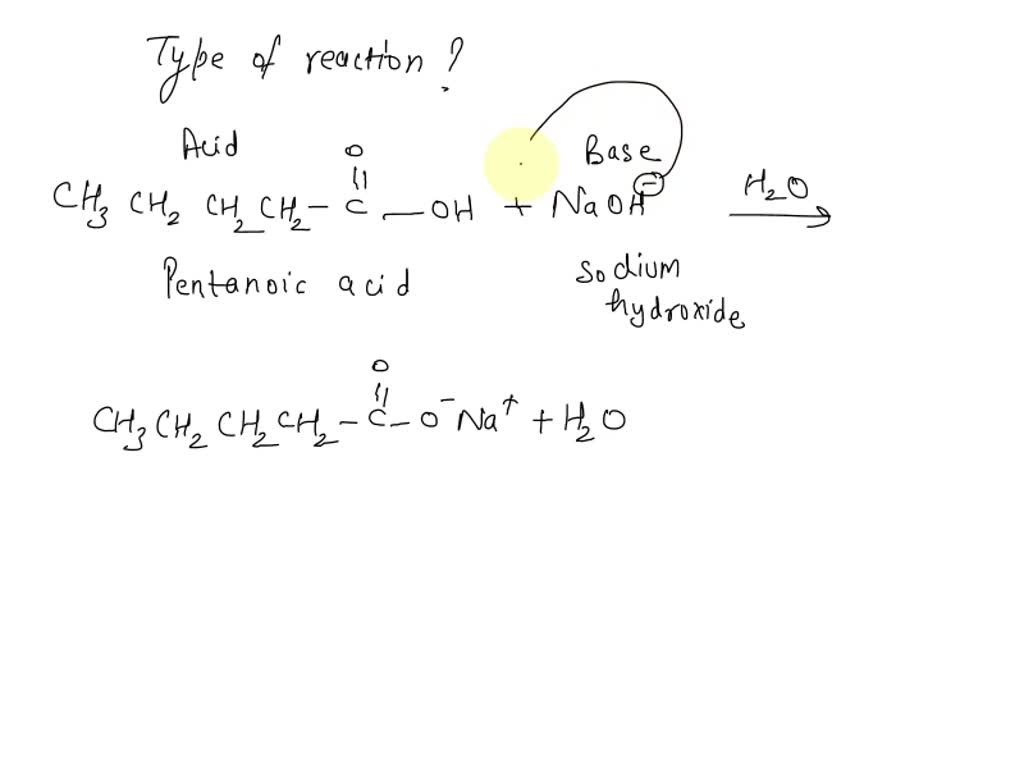 Type of reaction ?
Acid Base
CH3 CH2 CH2 CH2 – C(=O) – OH + NaOH⊖ H2O →
Pentanoic acid sodium hydroxide
CH3 CH2 CH2 CH2 – C(=O) – O⁻ Na⁺ + H2O